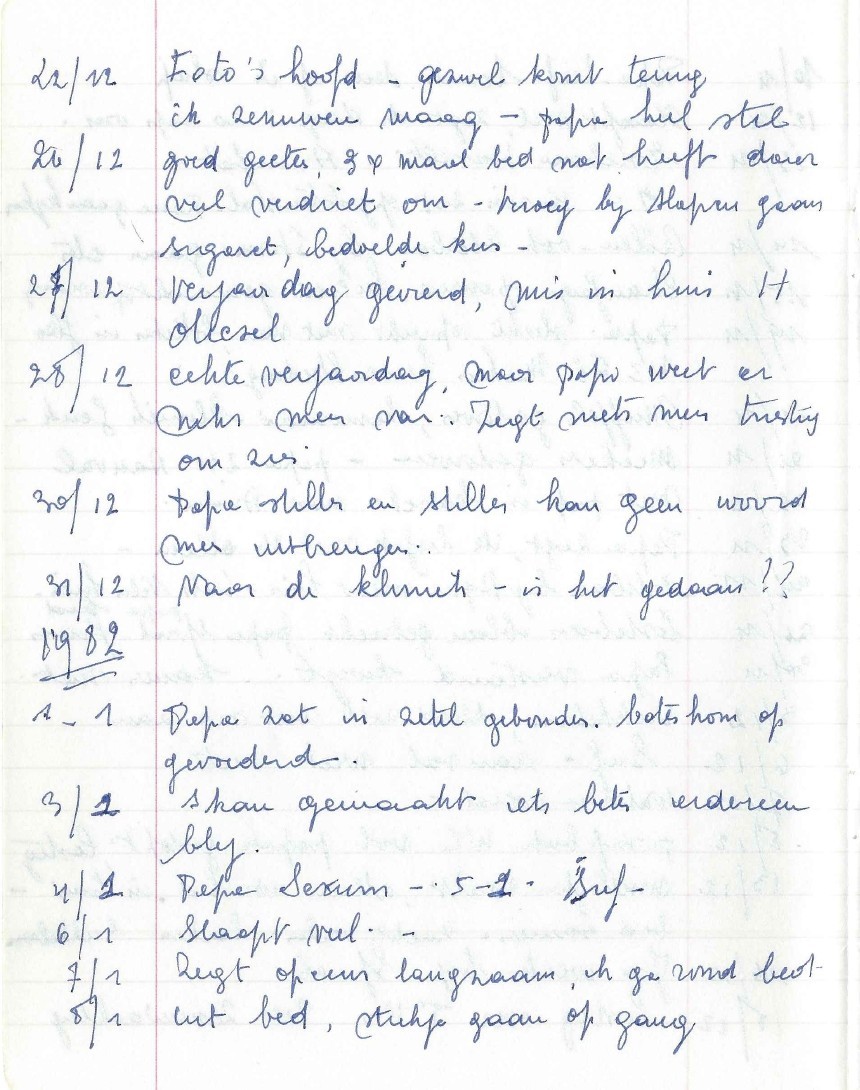 22/12 Foto's hoofd - gezwel komt terug
ik zenuwen maag - papa heel stil
26/12 goed geeten, 3 x maal bed nat, heeft daar
veel verdriet om - vroeg by slapen gaan
sigaret, bedoelde kus -
27/12 Verjaardag gevierd, mis in huis H
Oliesel
28/12 echte verjaardag, maar papa weet er
niks meer van. Zegt niets meer triestig
om zien
30/12 Papa stiller en stiller kan geen woord
meer uitbrengen..
31/12 Naar de kliniek - is het gedaan??
1982
1-1 Papa zat in zetel gebonden. boterham op
gevoederd.
3/1 Skan gemaakt iets beter iedereen
bly.
4/1 Papa Serum - 5-1- Suf-
6/1 Slaapt veel. -
7/1 Zegt opeens langzaam, ik ga rond
8/1 uit bed, stukje gaan op gang